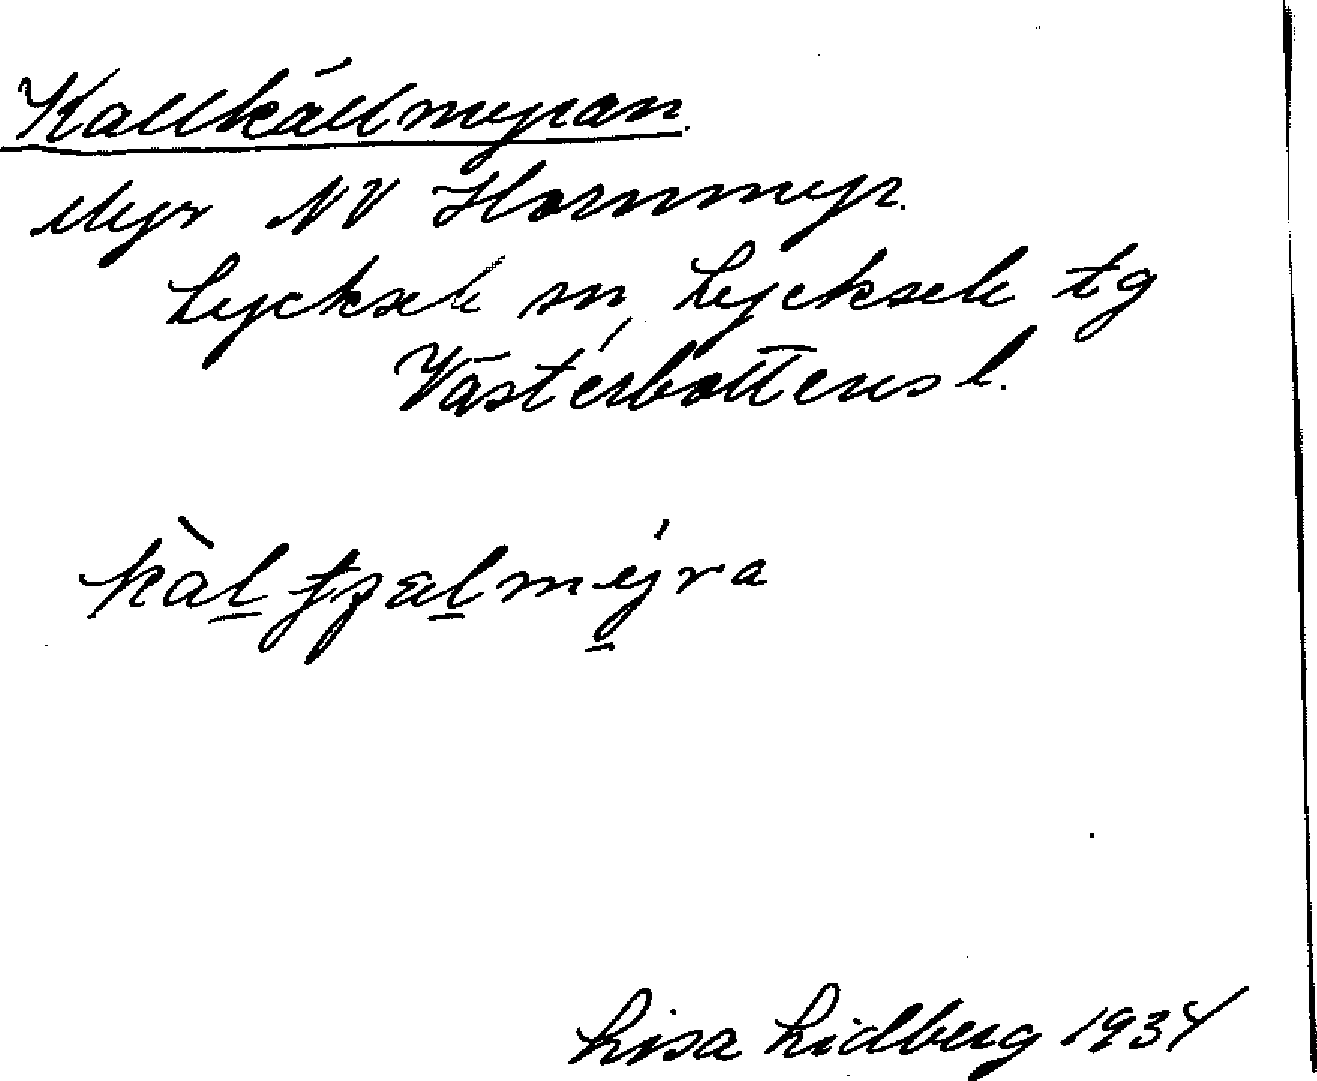 Kallkällmyran.
Myr NV Hornmyr.
Lycksele sn, Lycksele tg
Västerbottens l.
kàl̲ tʒæl̲mý̲ra
Lisa Lidberg 1934